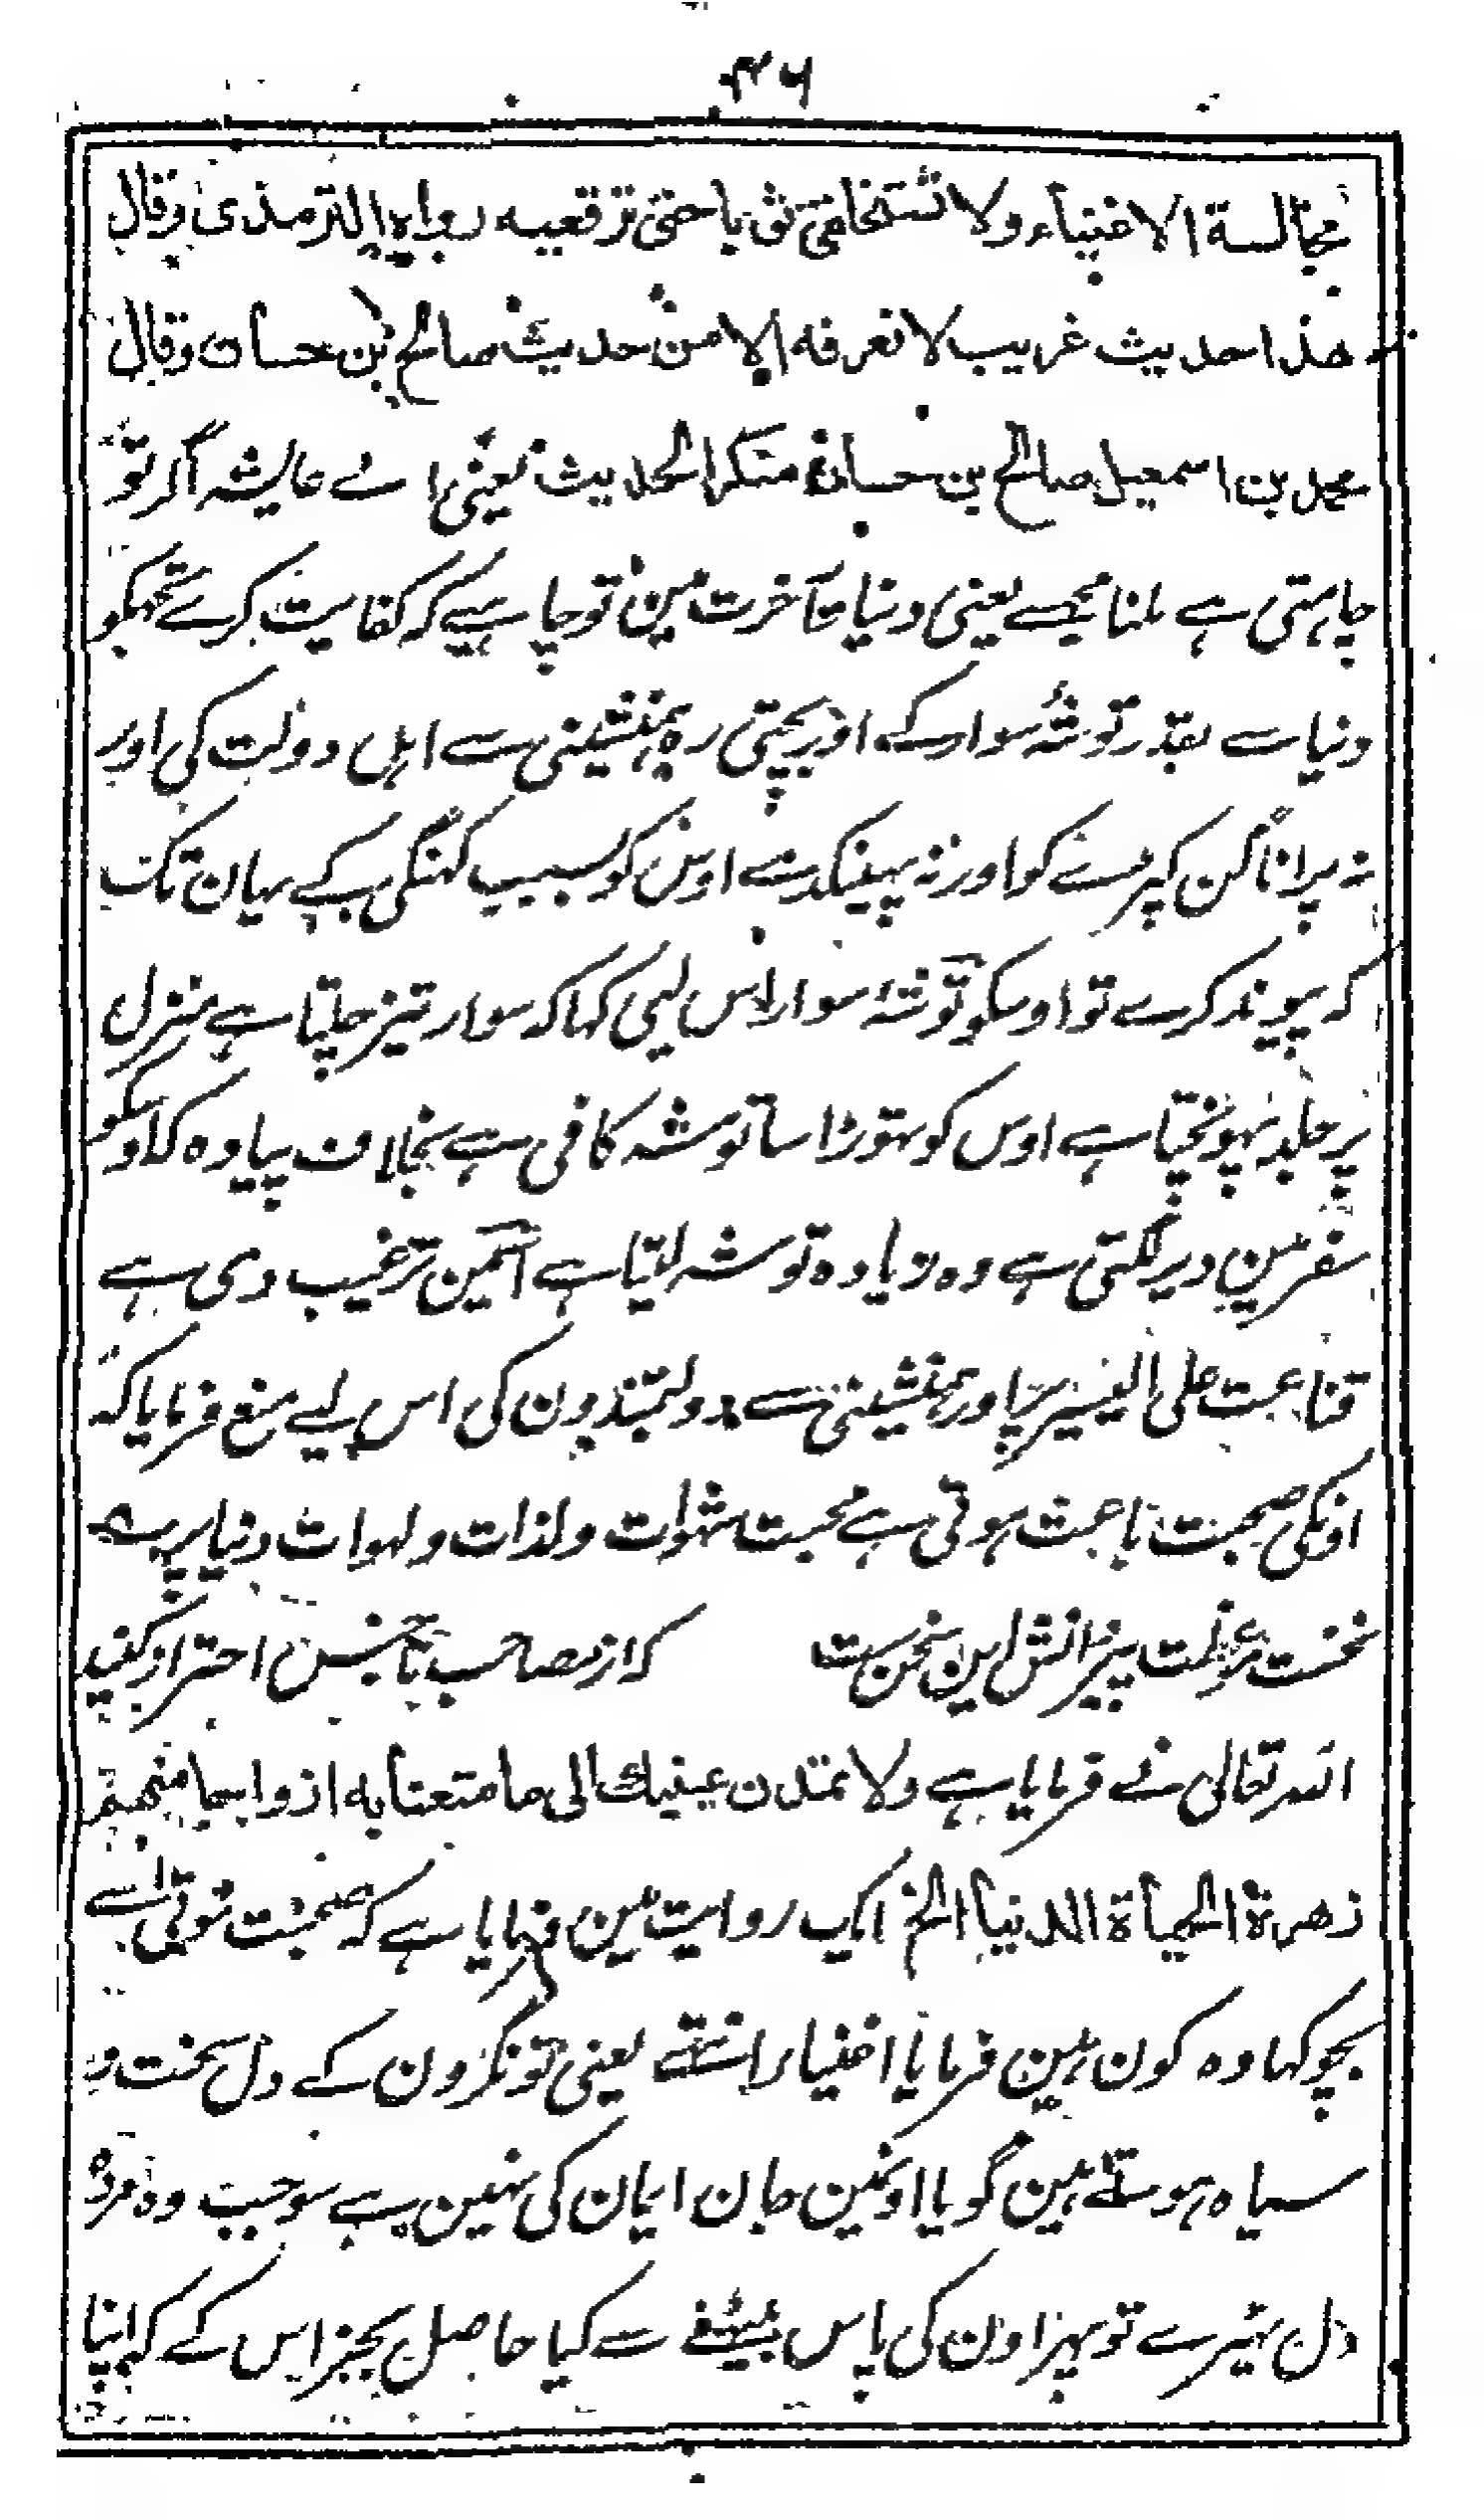 ۳۶
مجالسة الاغنیاء ولا تستخلقی ثوبا حتی ترقعیه رواه الترمذی وقال
هذا حدیث غریب لا نعرفه الا من حدیث صالح بن حسان وقال
محمد بن اسمعیل صالح بن حسان منکر الحدیث یعنی اے عایشہ اگر تو
چاہتی ہے ملنا مجھسے یعنی دنیا و آخرت مین تو چاہیے کہ کفایت کرے تجھکو
دنیا سے بقدر توشۂ سوار کے اور بچتی رہ ہمنشینی سے اہل دولت کی اور
نہ پرانا گن کپڑے کو اور نہ پھینکدے اوس کو بسبب کہنگی کے یہان تک
کہ پیوند کرے تو اوسکو توشۂ سوار اس لیی کہا کہ سوار تیز چلتا ہے منزل
پر جلد پہونچتا ہے اوس کو تھوڑا سا توشہ کافی ہے بخلاف پیادہ کہ اوسکو
سفر مین دیر لگتی ہے وہ زیادہ توشہ لیتا ہے اسمین ترغیب دی ہے
قناعت علی الیسیر پر اور ہمنشینی سے دولتمندون کی اس لیے منع فرمایا کہ
اونکی صحبت باعث ہوتی ہے محبت شہوات ولذات ولہوات دنیا پر ؎
نخست موعظت پیر دانش این سخن ست کہ از مصاحب ناجنس احتراز کنید
اللہ تعالی نے فرمایا ہے ولا تمدن عینیك الی ما متعنا به ازواجا منهم
زهرة الحیاة الدنیا الخ ایک روایت مین فرمایا ہے کہ صحبت موتی سے
بچو کہا وہ کون ہین فرمایا اغنیا راستے یعنی تونگرون کے دل سخت و
سیاہ ہوتے ہین گویا اونمین جان ایمان کی نہین ہے سو جب وہ مردہ
دل ٹھیرے تو پھر اون کی پاس بیٹھنے سے کیا حاصل بجز اس کے کہ اپنا